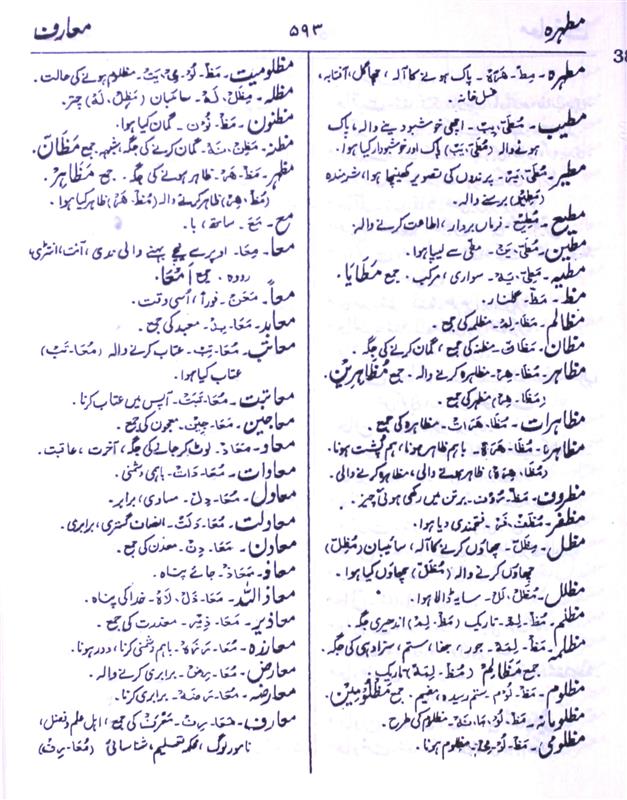 مطہرہ
۵۹۳
معارف
38
مطہرہ۔ مِط۔ہَرَہ۔ پاک ہونے کا آلہ، چھاگل، آفتابہ،
غسل خانہ۔
مطیب۔ مُطَیّ۔یِب۔ اچھی خوشبو دینے والہ، پاک
ہونے والہ (مُطَیّ۔یَب) پاک اور خوشبودار کیا ہوا۔
مطیر۔ مُطَیّ۔یَر۔ پرندوں کی تصویر کھینچا ہوا، شرمندہ
(مَطِیر) برسنے والہ۔
مطیع۔ مُطِیع۔ فرماں بردار، اطاعت کرنے والہ۔
مطین۔ مُطَیّ۔یَن۔ مٹی سے لیپا ہوا۔
مطیہ۔ مَطِیّ۔یَہ۔ سواری، مرکب۔ جمع مَطَایَا۔
مظ۔ مَظّ۔ گلنار۔
مظالم۔ مَظَا۔لِم۔ مظلمہ کی جمع۔
مظان۔ مَظَانّ۔ مظنہ کی جمع، گمان کرنے کی جگہ۔
مظاہر۔ مُظَا۔ہِر۔ مظاہرہ کرنے والہ۔ جمع مُظَاہِرِیْن۔
(مَظَا۔ہِر) مظہر کی جمع۔
مظاہرات۔ مُظَا۔ہَرَات۔ مظاہرہ کی جمع۔
مظاہرہ۔ مُظَا۔ہَرَہ۔ باہم ظاہر ہونا، ہم پشت ہونا۔
(مُظَا۔ہِرَہ) ظاہر ہونے والی، مظاہرہ کرنے والی۔
مظروف۔ مَظ۔رُوْف۔ برتن میں رکھی ہوئی چیز۔
مظفر۔ مُظَف۔فَر۔ فتحمندی دیا ہوا۔
مظل۔ مِظَلّ۔ چھاؤں کرنے کا آلہ، سائبان (مُظِلّ)
چھاؤں کرنے والہ (مُظَلّ) چھاؤں کیا ہوا۔
مظلل۔ مُظَل۔لَل۔ سایہ ڈالا ہوا۔
مظلم۔ مُظ۔لِم۔ تاریک (مَظ۔لِم) اندھیری جگہ۔
مظلمہ۔ مَظ۔لِمَہ۔ جور، جفا، ستم، سزا دہی کی جگہ۔
جمع مَظَالِمْ (مُظ۔لِمَہ) تاریک۔
مظلوم۔ مَظ۔لُوْم۔ ستم رسیدہ، مغیم۔ جمع مَظْلُومِیْن۔
مظلومانہ۔ مَظ۔لُوْ۔مَا۔نَہ۔ مظلوم کی طرح۔
مظلومی۔ مَظ۔لُوْ۔مِی۔ مظلوم ہونا۔
مظلومیت۔ مَظ۔لُوْ۔مِیْ۔یَت۔ مظلوم ہونے کی حالت۔
مظلہ۔ مِظَل۔لَہ۔ سائبان (مَظِل۔لَہ) چتر۔
مظنون۔ مَظ۔نُوْن۔ گمان کیا ہوا۔
مظنہ۔ مَظِن۔نَہ۔ گمان کرنے کی جگہ، شبہہ۔ جمع مَظَانّ۔
مظہر۔ مَظ۔ہَر۔ ظاہر ہونے کی جگہ۔ جمع مَظَاہِر۔
(مُظ۔ہِر) ظاہر کرنے والہ (مُظ۔ہَر) ظاہر کیا ہوا۔
مع۔ مَعَ۔ ساتھ، با۔
معا۔ مِعَا۔ اوپر سے نیچے بہنے والی ندی، آنت، انتڑی،
رودہ۔ جمع اَمْعَا۔
معاً۔ مَعَن۔ فوراً، اُسی وقت۔
معابد۔ مَعَا۔بِد۔ معبد کی جمع۔
معاتب۔ مُعَا۔تِب۔ عتاب کرنے والہ (مُعَا۔تَب)
عتاب کیا ہوا۔
معاتبت۔ مُعَا۔تَبَت۔ آپس میں عتاب کرنا۔
معاجین۔ مَعَا۔جِیْن۔ معجون کی جمع۔
معاد۔ مَعَاد۔ لوٹ کر جانے کی جگہ، آخرت، عاقبت۔
معادات۔ مُعَا۔دَات۔ باہمی دشمنی۔
معادل۔ مُعَا۔دِل۔ مساوی، برابر۔
معادلت۔ مُعَا۔دَلَت۔ انصاف گستری، برابری۔
معادن۔ مَعَا۔دِن۔ معدن کی جمع۔
معاذ۔ مَعَاذ۔ جائے پناہ۔
معاذ اللہ۔ مَعَا۔ذَل۔لَاہ۔ خدا کی پناہ۔
معاذیر۔ مَعَا۔ذِیْر۔ معذرت کی جمع۔
معارزہ۔ مُعَا۔رَزَہ۔ باہم دشمنی کرنا، دور ہونا۔
معارض۔ مُعَا۔رِض۔ برابری کرنے والہ۔
معارضہ۔ مُعَا۔رَضَہ۔ برابری کرنا۔
معارف۔ مَعَا۔رِف۔ معرفت کی جمع، اہل علم و فضل،
نامور لوگ، محکمہ تعلیم، شناسائی (مُعَا۔رِف)